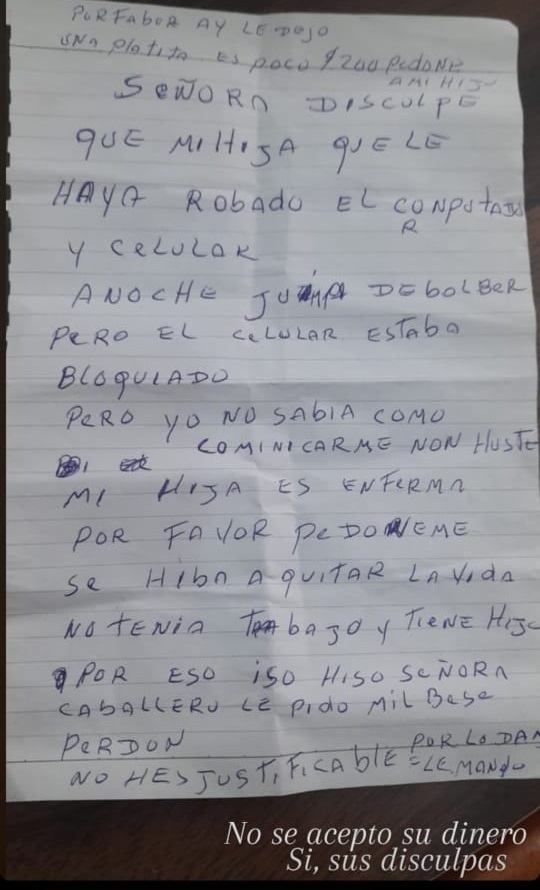 PORFABOR AY LE DOJO
UNA PLATITA ES POCO $200 PEDONE
A MI HIJ
SEÑORA DISCULPE
QUE MI HIJA QUE LE
HAYA ROBADO EL CONPUTADO
R
Y CELULAR
ANOCHE DEBOLBER
PERO EL CELULAR ESTABA
BLOQUIADO
PERO YO NO SABIA COMO
COMINICARME NON HUSTE
MI HIJA ES ENFERMA
POR FAVOR PEDONEME
SE HIBA A QUITAR LA VIDA
NO TENIA TRABAJO Y TIENE HIJO
POR ESO ISO HISO SEÑORA
CABALLERO LE PIDO MIL BESE
PERDON
POR LO DAM
NO HES JUSTIFICABLE = LE MANDO
No se acepto su dinero
Si, sus disculpas